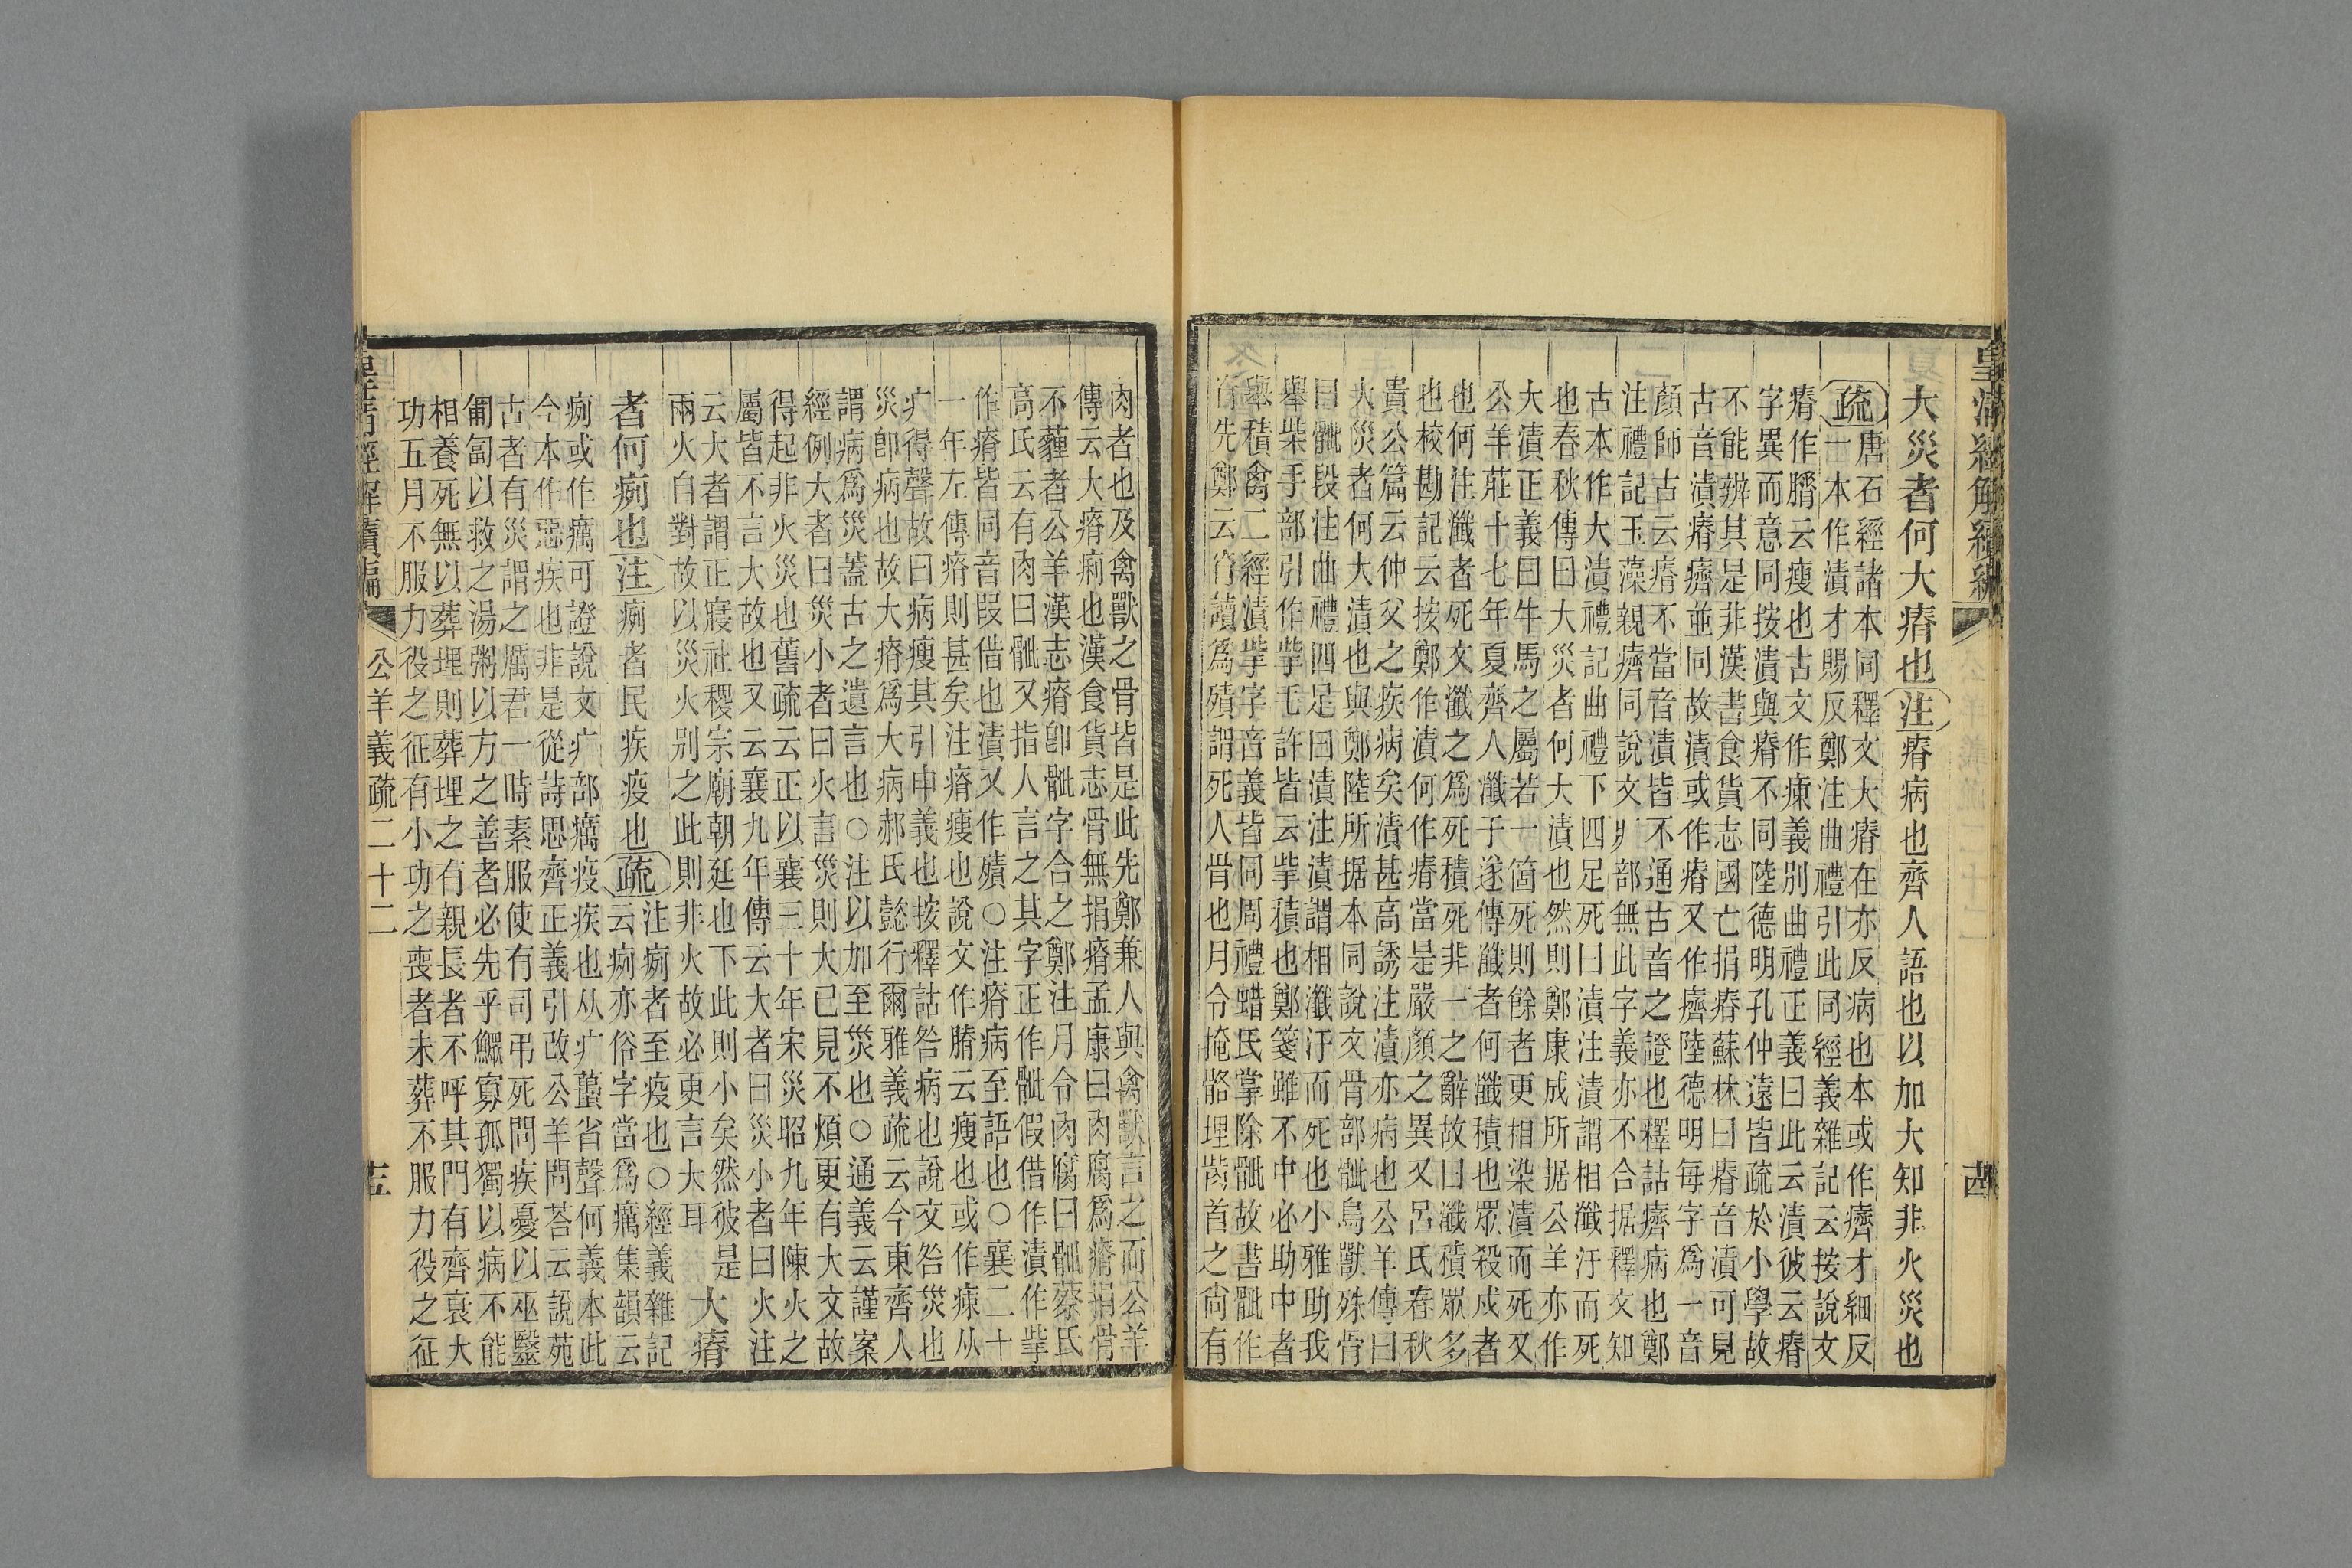 皇清經解續編
大災者何大瘠也注瘠病也齊人語也以加大知非火災也
疏唐石經諸本同釋文大瘠在亦反病也本或作㾹才細反
一本作漬才賜反鄭注曲禮引此同經義雜記云按說文
瘠作膌云瘦也古文作㾊義別曲禮正義曰此云漬彼云瘠
字異而意同按漬與瘠不同陸德明孔仲遠皆疏於小學故
不能辨其是非漢書食貨志國亡捐瘠蘇林曰瘠音漬可見
古音漬瘠㾹並同故漬或作瘠又作㾹陸德明每字爲一音
顏師古云瘠不當音漬皆不通古音之證也釋詁㾹病也鄭
注禮記玉藻親㾹同說文疒部無此字義亦不合据釋文知
古本作大漬禮記曲禮下四足死曰漬注漬謂相瀸汙而死
也春秋傳曰大災者何大漬也然則鄭康成所据公羊亦作
大漬正義曰牛馬之屬若一箇死則餘者更相染漬而死又
公羊莊十七年夏齊人瀸于遂傳瀸者何瀸積也眾殺戍者
也何注瀸者死文瀸之爲死積死非一之辭故曰瀸積眾多
也校勘記云按鄭作漬何作瘠當是嚴顏之異又呂氏春秋
貴公篇云仲父之疾病矣漬甚高誘注漬亦病也公羊傳曰
大災者何大漬也與鄭陸所据本同說文骨部骴鳥獸殊骨
曰骴段注曲禮四足曰漬注漬謂相瀸汙而死也小雅助我
舉柴手部引作㧘毛許皆云㧘積也鄭箋雖不中必助中者
舉積禽二經漬㧘字音義皆同周禮蜡氏掌除骴故書骴作
脊先鄭云脊讀爲殰謂死人骨也月令掩骼埋胔首之尙有
肉者也及禽獸之骨皆是此先鄭兼人與禽獸言之而公羊
傳云大瘠痢也漢食貨志骨無捐瘠孟康曰肉腐爲瘠捐骨
不薶者公羊漢志瘠卽骴字合之鄭注月令肉腐曰骴蔡氏
高氏云有肉曰骴又指人言之其字正作骴假借作漬作㧘
作瘠皆同音叚借也漬又作殰○注瘠病至語也○襄二十
一年左傳瘠則甚矣注瘠瘦也說文作膌云瘦也或作㾊从
疒得聲故曰病瘦其引申義也按釋詁咎病也說文咎災也
災卽病也故大瘠爲大病郝氏懿行爾雅義疏云今東齊人
謂病爲災蓋古之遺言也○注以加至災也○通義云謹案
經例大者曰災小者曰火言災則大已見不煩更有大文故
得起非火災也舊疏云正以襄三十年宋災昭九年陳火之
屬皆不言大故也又云襄九年傳云大者曰災小者曰火注
云大者謂正寢社稷宗廟朝廷也下此則小矣然彼是
兩火自對故以災火別之此則非火故必更言大耳大瘠
者何痢也注痢者民疾疫也疏注痢者至疫也○經義雜記
云痢亦俗字當爲癘集韻云
痢或作癘可證說文疒部癘疫疾也从疒蠆省聲何義本此
今本作惡疾也非是從詩思齊正義引改公羊問荅云說苑
古者有災謂之厲君一時素服使有司弔死問疾憂以巫毉
匍匐以救之湯粥以方之善者必先乎鰥寡孤獨以病不能
相養死無以葬埋則葬埋之有親長者不呼其門有齊衰大
功五月不服力役之征有小功之喪者未葬不服力役之征
皇淸經解續編
公羊義疏二十二